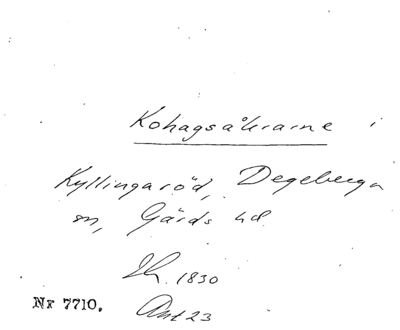 Kohagsåkrarne i
Kyllingaröd, Degeberga
sn, Gärds hd.
Sk. 1830
Nr 7710. Ant 23